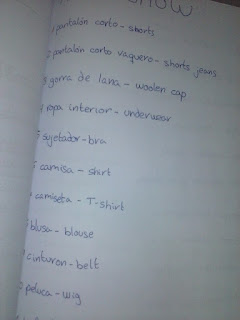 SHOW
pantalón corto - shorts
pantalón corto vaquero - shorts jeans
gorra de lana - woolen cap
ropa interior - underwear
sujetador - bra
camisa - shirt
camiseta - T-shirt
blusa - blouse
cinturon - belt
peluca - wig